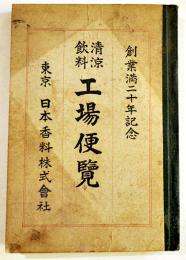 創業満二十年記念
清涼飲料
工場便覧
東京 日本香料株式會社